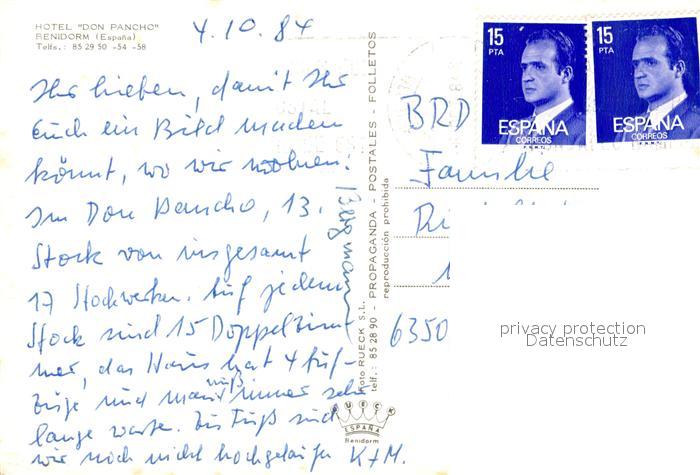 HOTEL "DON PANCHO"
BENIDORM (España)
Telfs.: 85 29 50 -54 -58
4.10.84
Ihr lieben, damit Ihr
Euch ein Bild machen
könnt, wo wir wohnen:
Im Don Pancho, 13.
Stock von insgesamt
17 Stockwerken. Auf jedem
Stock sind 15 Doppelzim
mer, das Haus hat 4 Auf-
züge und man muß immer sehr
lange warten. Zu Fuß sind
wir noch nicht hochgelaufen K+M.
Foto RUECK S.L. - PROPAGANDA - POSTALES - FOLLETOS
telf.: 85 28 90 - reproducción prohibida
RUECK
ESPAÑA
Benidorm
15
PTA
ESPAÑA
CORREOS
F.N.M.T.
15
PTA
ESPAÑA
CORREOS
F.N.M.T.
BRD
Familie
6350
privacy protection
Datenschutz